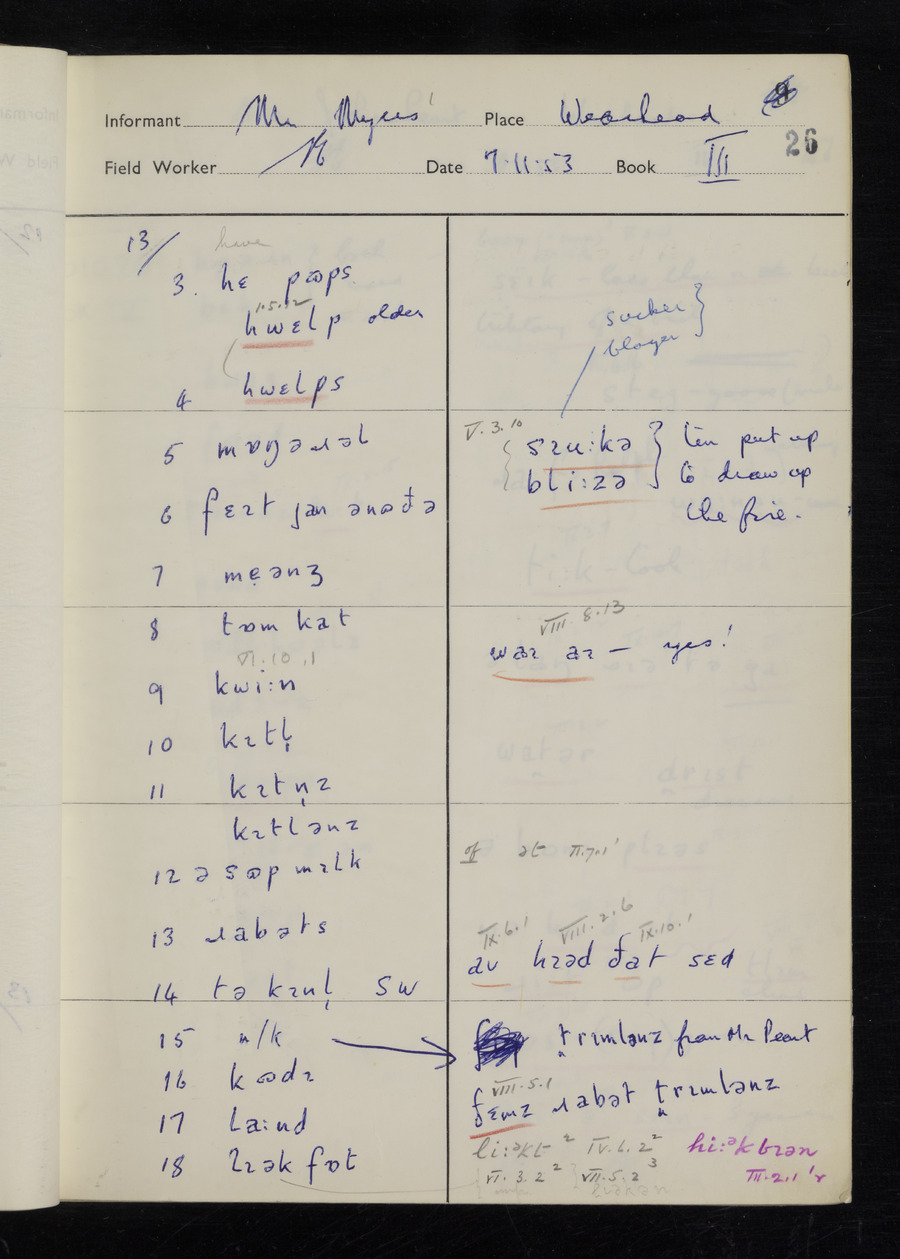 Informant Mr Myers Place Wearhead 9
26
Field Worker Date 7·11·53 Book III
13/ have
3. hɛ pɷps
1.5.12
hwɛlp older
4 hwɛlps
5 mɒŋəɹəl
6 fɛɪt jan ənɷðə
7 mẹənʒ
8 tɒm kat
VI.10.1
9 kwi:n
10 kɪtl̩
11 kɪtn̩z
kɪtlənz
12 ə sɷp mɪlk
13 ɹabəts
14 tə kɪnl̩ SW
15 n/k
16 kɷdɪ
17 la:nd
18 fɒt
sucker
blazer
V.3.10
sɪu:kə tin put up
bli:zə to draw up
the fire.
VIII 8.13
waɪ aɪ — yes!
of ət II.7.1'
IX.6.1 VIII.2.6 IX.10.1
av hɪəd ðat sɛd
t̪rɪmlənz from Mr Peart
VIII.5.1
ðɛmz ɹabət t̪rɪmlənz
li:əkt ² IV.6.2² hi:ᵊk bɪən
VI.3.2² VII.5.2³ III.2.1'r